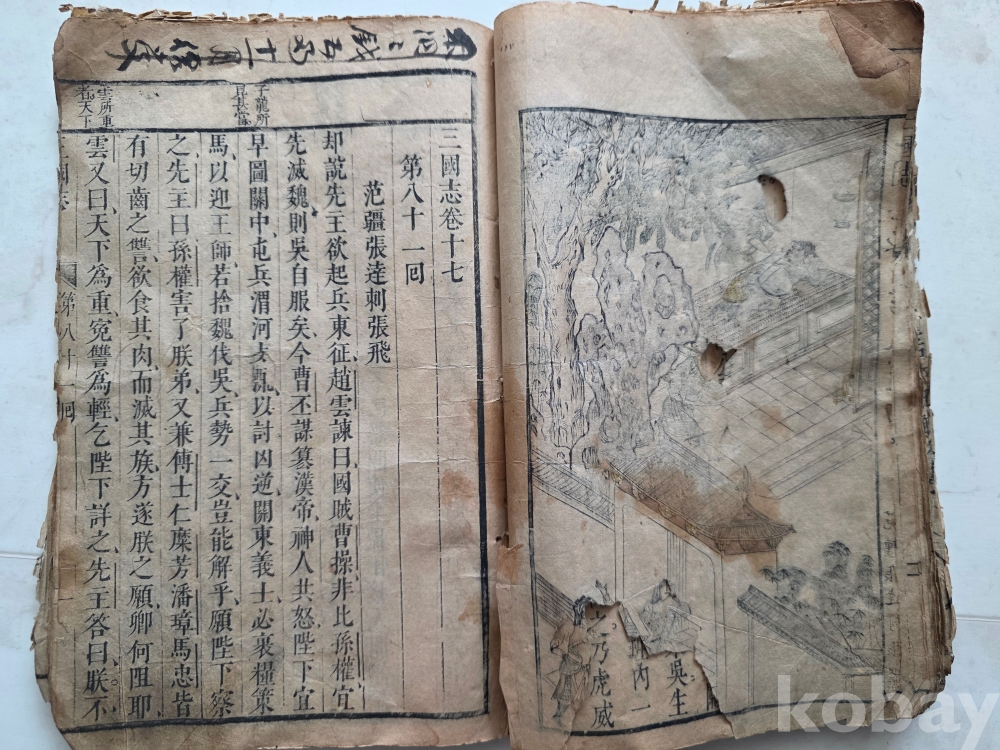 三國志卷十七
第八十一回
范疆張達刺張飛
却說先王欲起兵東征趙雲諫曰國賊曹操非比孫權宜
先滅魏則吳自服矣今曹丕謀簒漢帝神人共怒陛下宜
早圖關中屯兵渭河以討凶逆關東義士必裹糧策
馬以迎王師若捨魏伐吳兵勢一交豈能解乎願陛下察
之先主曰孫權害了朕弟又兼傅士仁糜芳潘璋馬忠皆
有切齒之讐欲食其肉而滅其族方遂朕之願卿何阻耶
雲又曰天下為重寃讐為輕乞陛下詳之先王答曰朕不
子龍所
見甚當
雲所重
者天下
第八十一回
吳生
內一
乃虎威
kobay